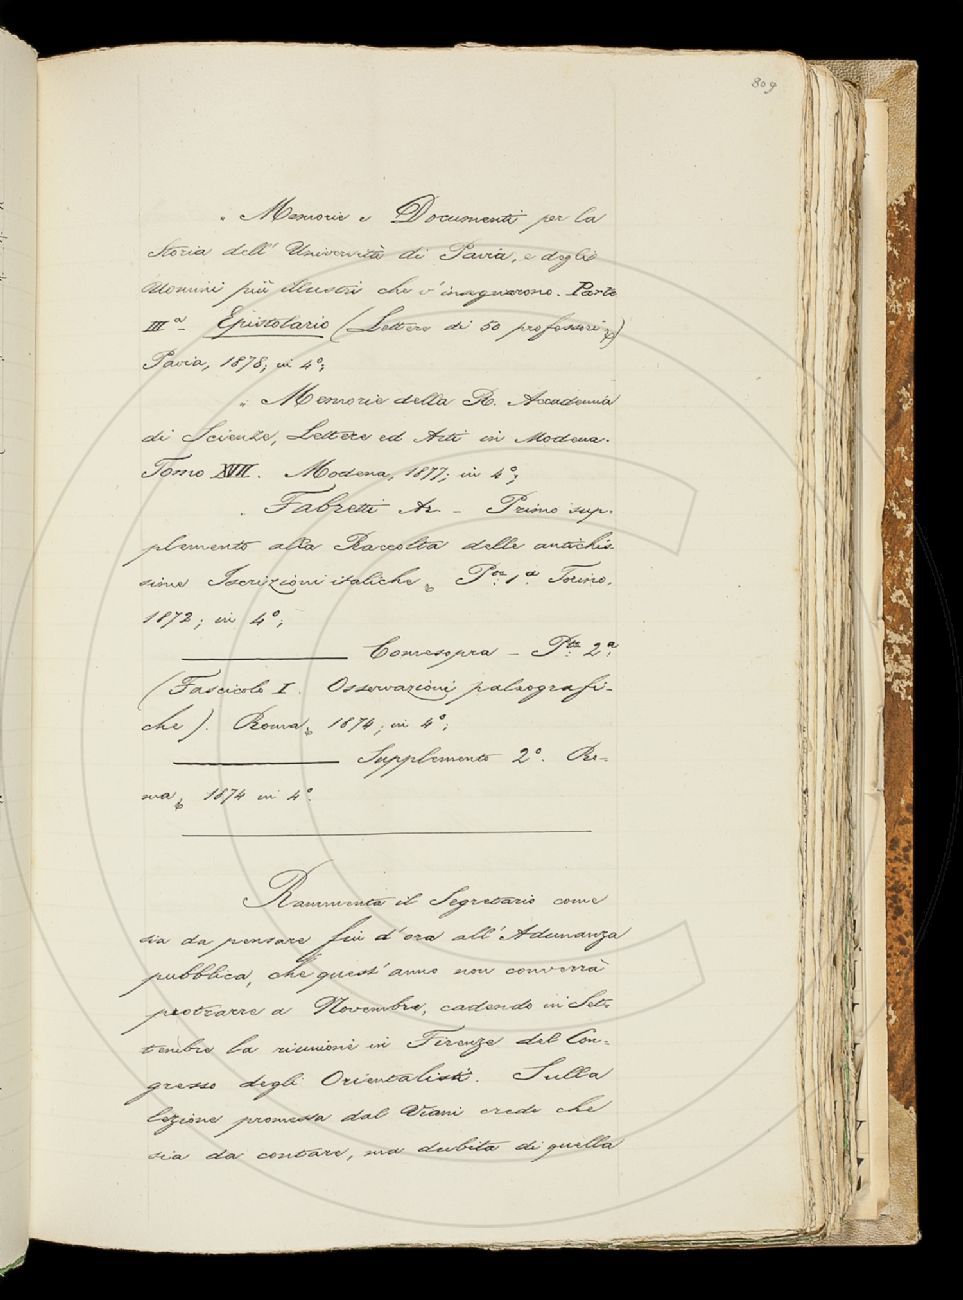 809
„ Memorie e Documenti per la
Storia dell' Università di Pavia, e degli
Uomini più illustri che v'insegnarono. Parte
IIIª Epistolario (Lettere di 50 professori)
Pavia, 1878; in 4º;
„ Memorie della R. Accademia
di Scienze, Lettere ed Arti in Modena.
Tomo XVII. Modena, 1877; in 4º;
„ Fabretti Ar. – Primo sup-
plemento alla Raccolta delle antichis-
sime Iscrizioni italiche, Pte 1ª Torino,
1872; in 4º;
Comesopra – Pte 2ª
(Fascicolo I. Osservazioni paleografi-
che). Roma, 1874; in 4º;
Supplemento 2º. Ro-
ma, 1874 in 4º.
Rammenta il Segretario come
sia da pensare fin d'ora all'Adunanza
pubblica, che quest'anno non converrà
protrarre a Novembre, cadendo in Set-
tembre la riunione in Firenze del Con-
gresso degli Orientalisti. Sulla
lezione promessa dal Viani crede che
sia da contare, ma dubita di quella